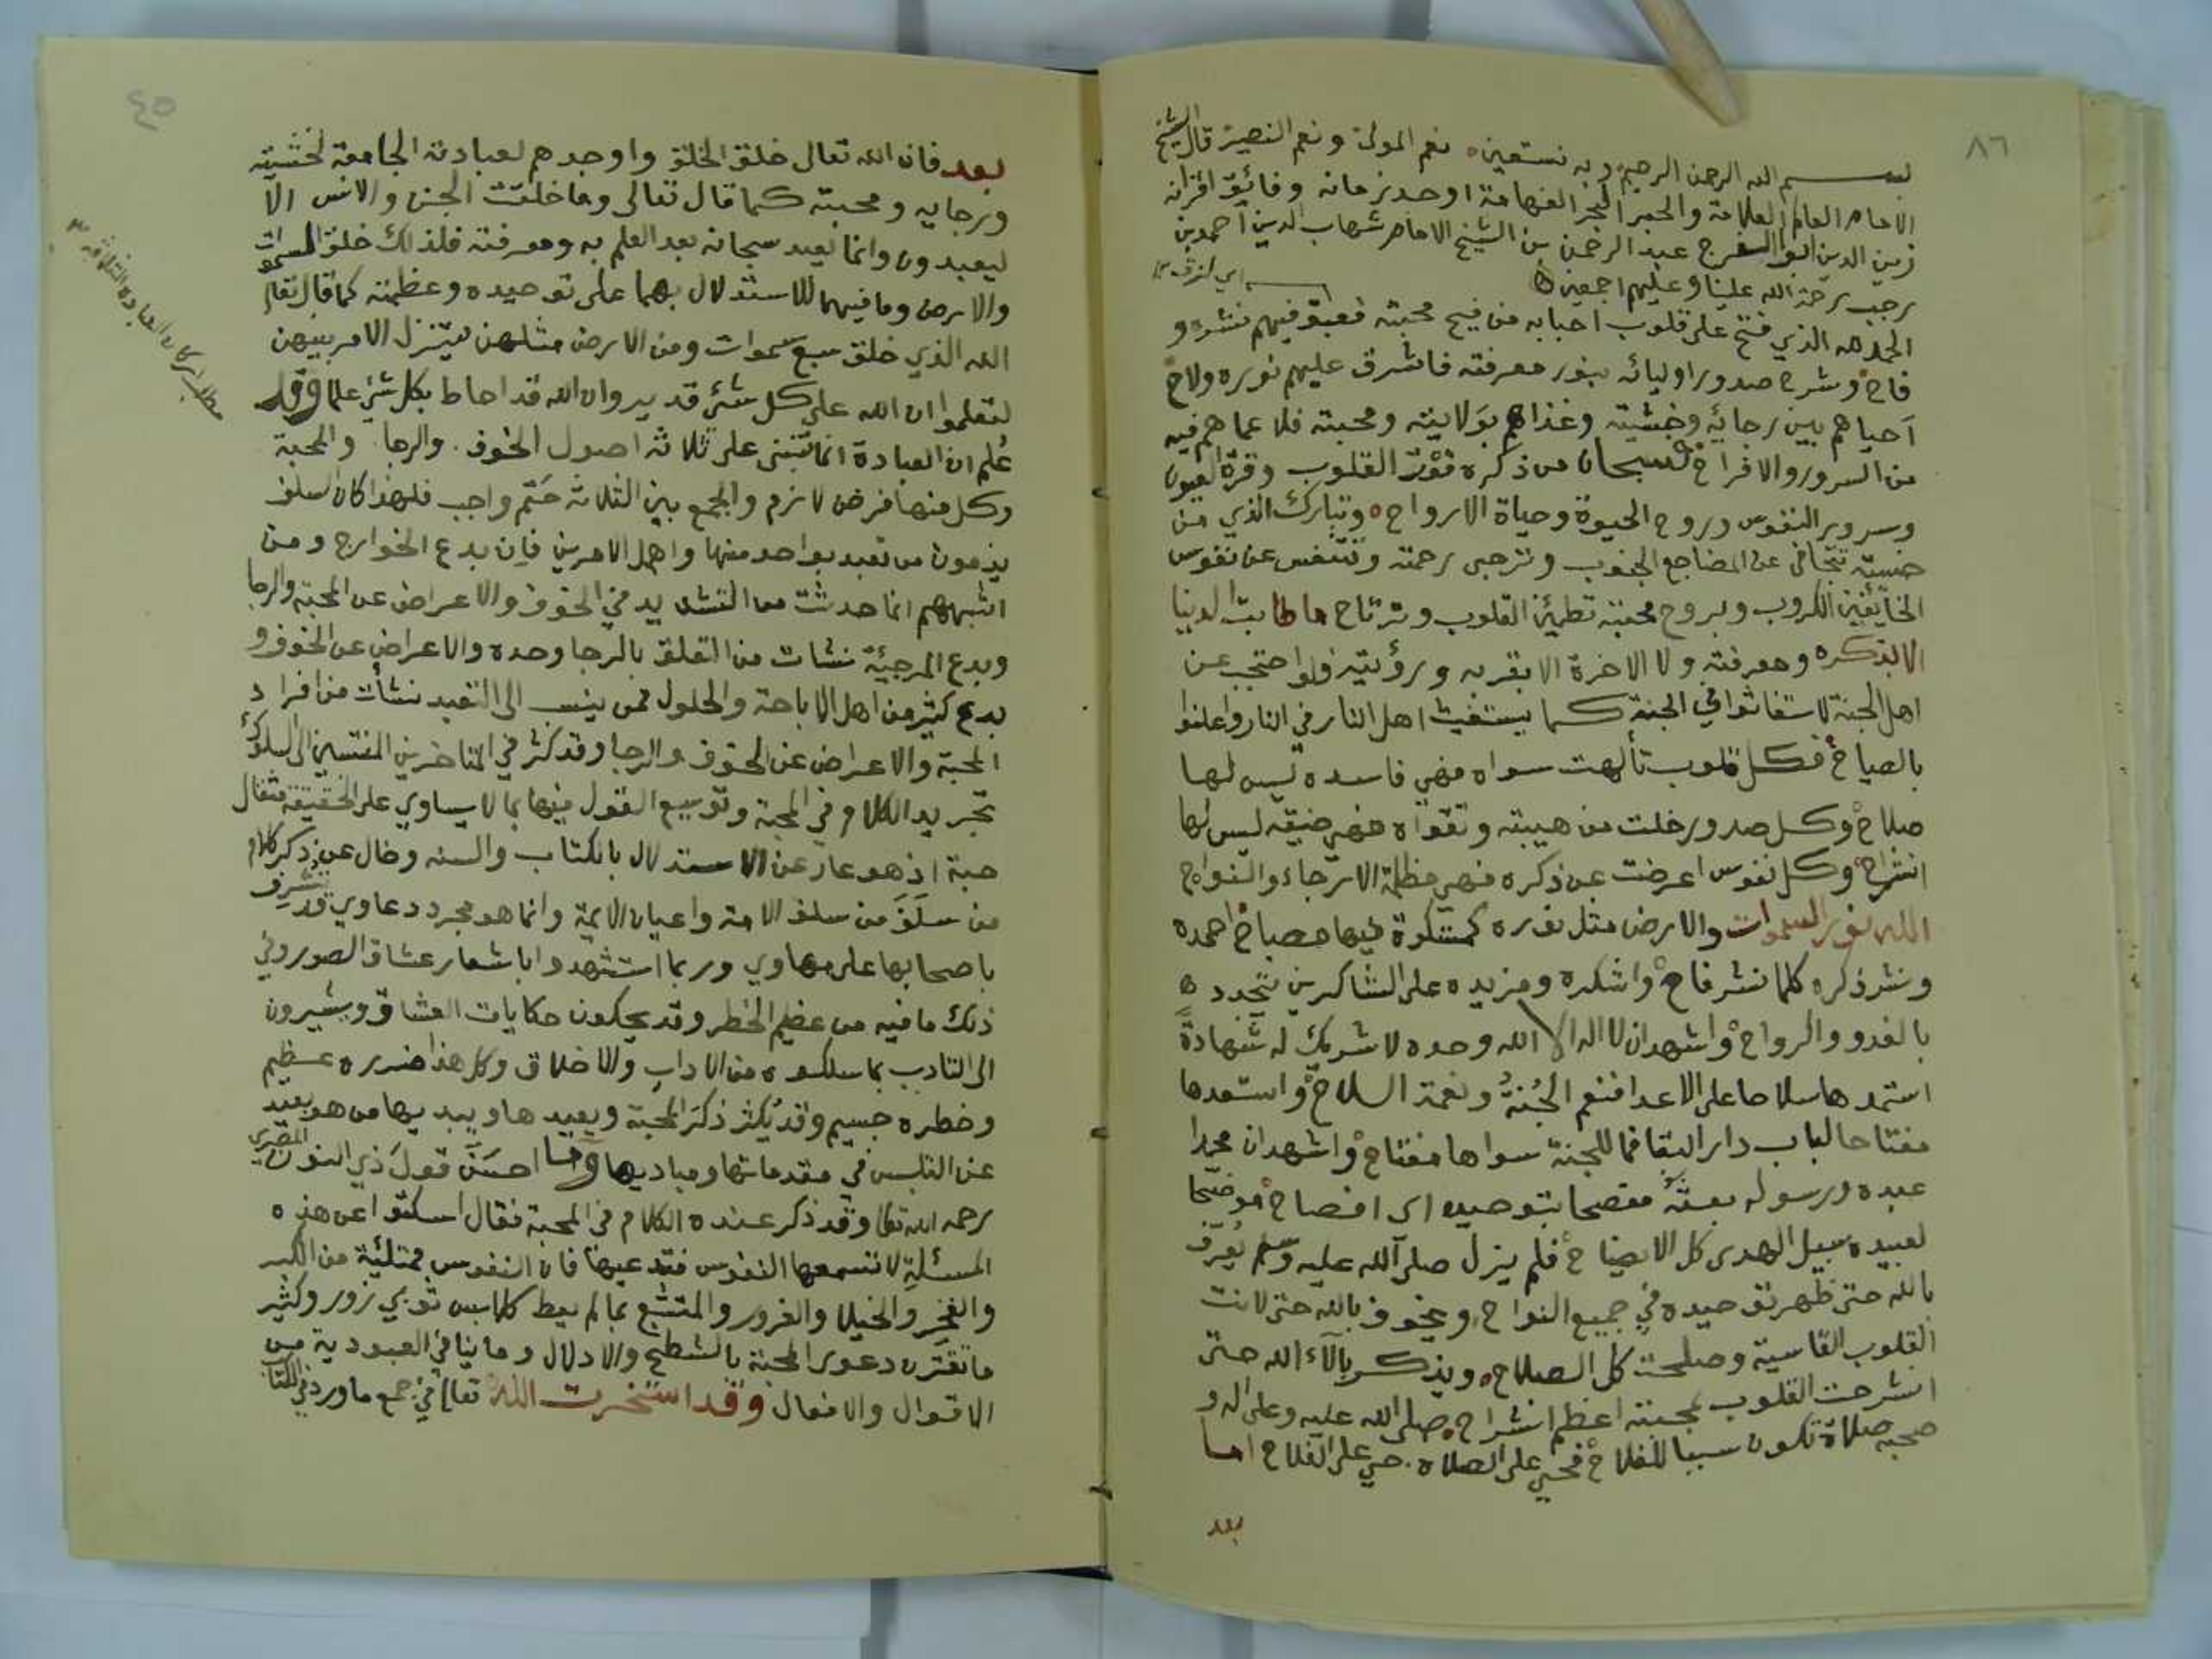 ٨٦
بسم الله الرحمن الرحيم وبه نستعين نعم المولى ونعم النصير قال الشيخ
الامام العالم العلامة والحبر البحر الفهامة اوحد زمانه وفائق اقرانه
زين الدين ابو الفرج عبد الرحمن بن الشيخ الامام شهاب الدين احمد بن
رجب رحمة الله علينا وعليهم اجمعين
الحمد لله الذي فتح على قلوب احبابه من فيح محبته فعبق فيهم نشره و
فاح وشرح صدور اوليائه بنور معرفته فاشرق عليهم نوره ولاح
أحياهم بين رجائه وخشيته وغذاهم بولايته ومحبته فلا عما هم فيه
من السرور والافراح فسبحان من ذكره قوت القلوب وقرة العيون
وسرور النفوس وروح الحيوة وحياة الارواح وتبارك الذي من
خشيته تتجافى عن المضاجع الجنوب وترجى رحمته وتتنفس عن نفوس
الخائفين الكروب وبروح محبته تطمئن القلوب وترتاح ما طابت الدنيا
الا بذكره ومعرفته ولا الاخرة الا بقربه ورؤيته فلو احتجب عن
اهل الجنة لاستغاثوا في الجنة كما يستغيث اهل النار في النار واعلنوا
بالصياح فكل قلوب تألهت سواه فهي فاسده ليس لها
صلاح وكل صدور خلت من هيبته وتقواه فهي ضيقه ليس لها
انشراح وكل نفوس اعرضت عن ذكره فهي مظلمة الارجاء والنواح
الله نور السموات والارض مثل نوره كمشكوة فيها مصباح احمده
ونشر ذكره كلما نشر فاح واشكره ومزيده على الشاكرين يتجدد
بالغدو والرواح واشهد ان لا اله الا الله وحده لا شريك له شهادة
استمدها سلاحا على الاعدا فنعم الجنة ونعمة السلاح واستعدها
مفتاحا لباب دار البقا فما للجنة سواها مفتاح واشهد ان محمدا
عبده ورسوله بعثه مفصحا بتوحيده اى افصاح موضحا
لعبيده سبيل الهدى كل الايضاح فلم يزل صلى الله عليه وسلم يعرف
بالله حتى ظهر توحيده في جميع النواح ويخوف بالله حتى لانت
القلوب القاسية وصلحت كل الصلاح ويذكر بآلاء الله حتى
انشرحت القلوب لمحبته اعظم انشراح صلى الله عليه وعلى اله و
صحبه صلاة تكون سببا للفلاح فحي على الصلاه حي على الفلاح اما
بعد
٤٥
بعد فان الله تعالى خلق الخلق واوجدهم لعبادته الجامعة لخشيته
ورجايه ومحبته كما قال تعالى وما خلقت الجن والانس الا
ليعبدون وانما يعبد سبحانه بعد العلم به ومعرفته فلذلك خلق السموات
والارض وما فيهما للاستدلال بهما على توحيده وعظمته كما قال تعالى
الله الذي خلق سبع سموات ومن الارض مثلهن يتنزل الامر بينهن
لتعلموا ان الله على كل شئ قدير وان الله قد احاط بكل شئ علما وقد
علم ان العبادة انما تنبنى على ثلاثه اصول الخوف والرجا والمحبة
وكل منها فرض لازم والجمع بين الثلاثة حتم واجب فلهذا كان السلف
يذمون من تعبد بواحد منها واهمل الامرين فان بدع الخوارج ومن
اشبههم انما حدثت من التشديد في الخوف والاعراض عن المحبة والرجا
وبدع المرجيئة نشات من التعلق بالرجا وحده والاعراض عن الخوف و
بدع كثير من اهل الاباحة والحلول ممن ينسب الى التعبد نشأت من افراد
المحبة والاعراض عن الخوف والرجا وقد كثر في المتاخرين المنتسبين الى السلوك
تجريد الكلام في المحبة وتوسيع القول فيها بما لا يساوي على الحقيقة مثقال
حبة اذ هو عار عن الاستدلال بالكتاب والسنه وخال عن ذكر كلام
من سلف من سلف الامة واعيان الايمة وانما هو مجرد دعاوي قد تشرف
باصحابها على مهاوي وربما استشهدوا باشعار عشاق الصور وفي
ذلك ما فيه من عظيم الخطر وقد يحكون حكايات العشاق ويشيرون
الى التادب بما سلكوه من الاداب والاخلاق وكل هذا ضرره عظيم
وخطره جسيم وقد يكثر ذكر المحبة ويعيدها ويبديها من هو بعيد
عن التلبس في مقدماتها ومباديها وما احسن قول ذي النون المصري
رحمه الله تعالى وقد ذكر عنده الكلام في المحبة فقال اسكتوا عن هذه
المسئلة لا تسمعها النفوس فتدعيها فان النفوس ممتلئية من الكبر
والفخر والخيلا والغرور والمتشبع بما لم يعط كلابس ثوبي زور وكثير
ما تقترن دعوى المحبة بالشطح والادلال وما ينافي العبودية من
الاقوال والافعال وقد استخرت الله تعالى في جمع ما ورد في الكتاب